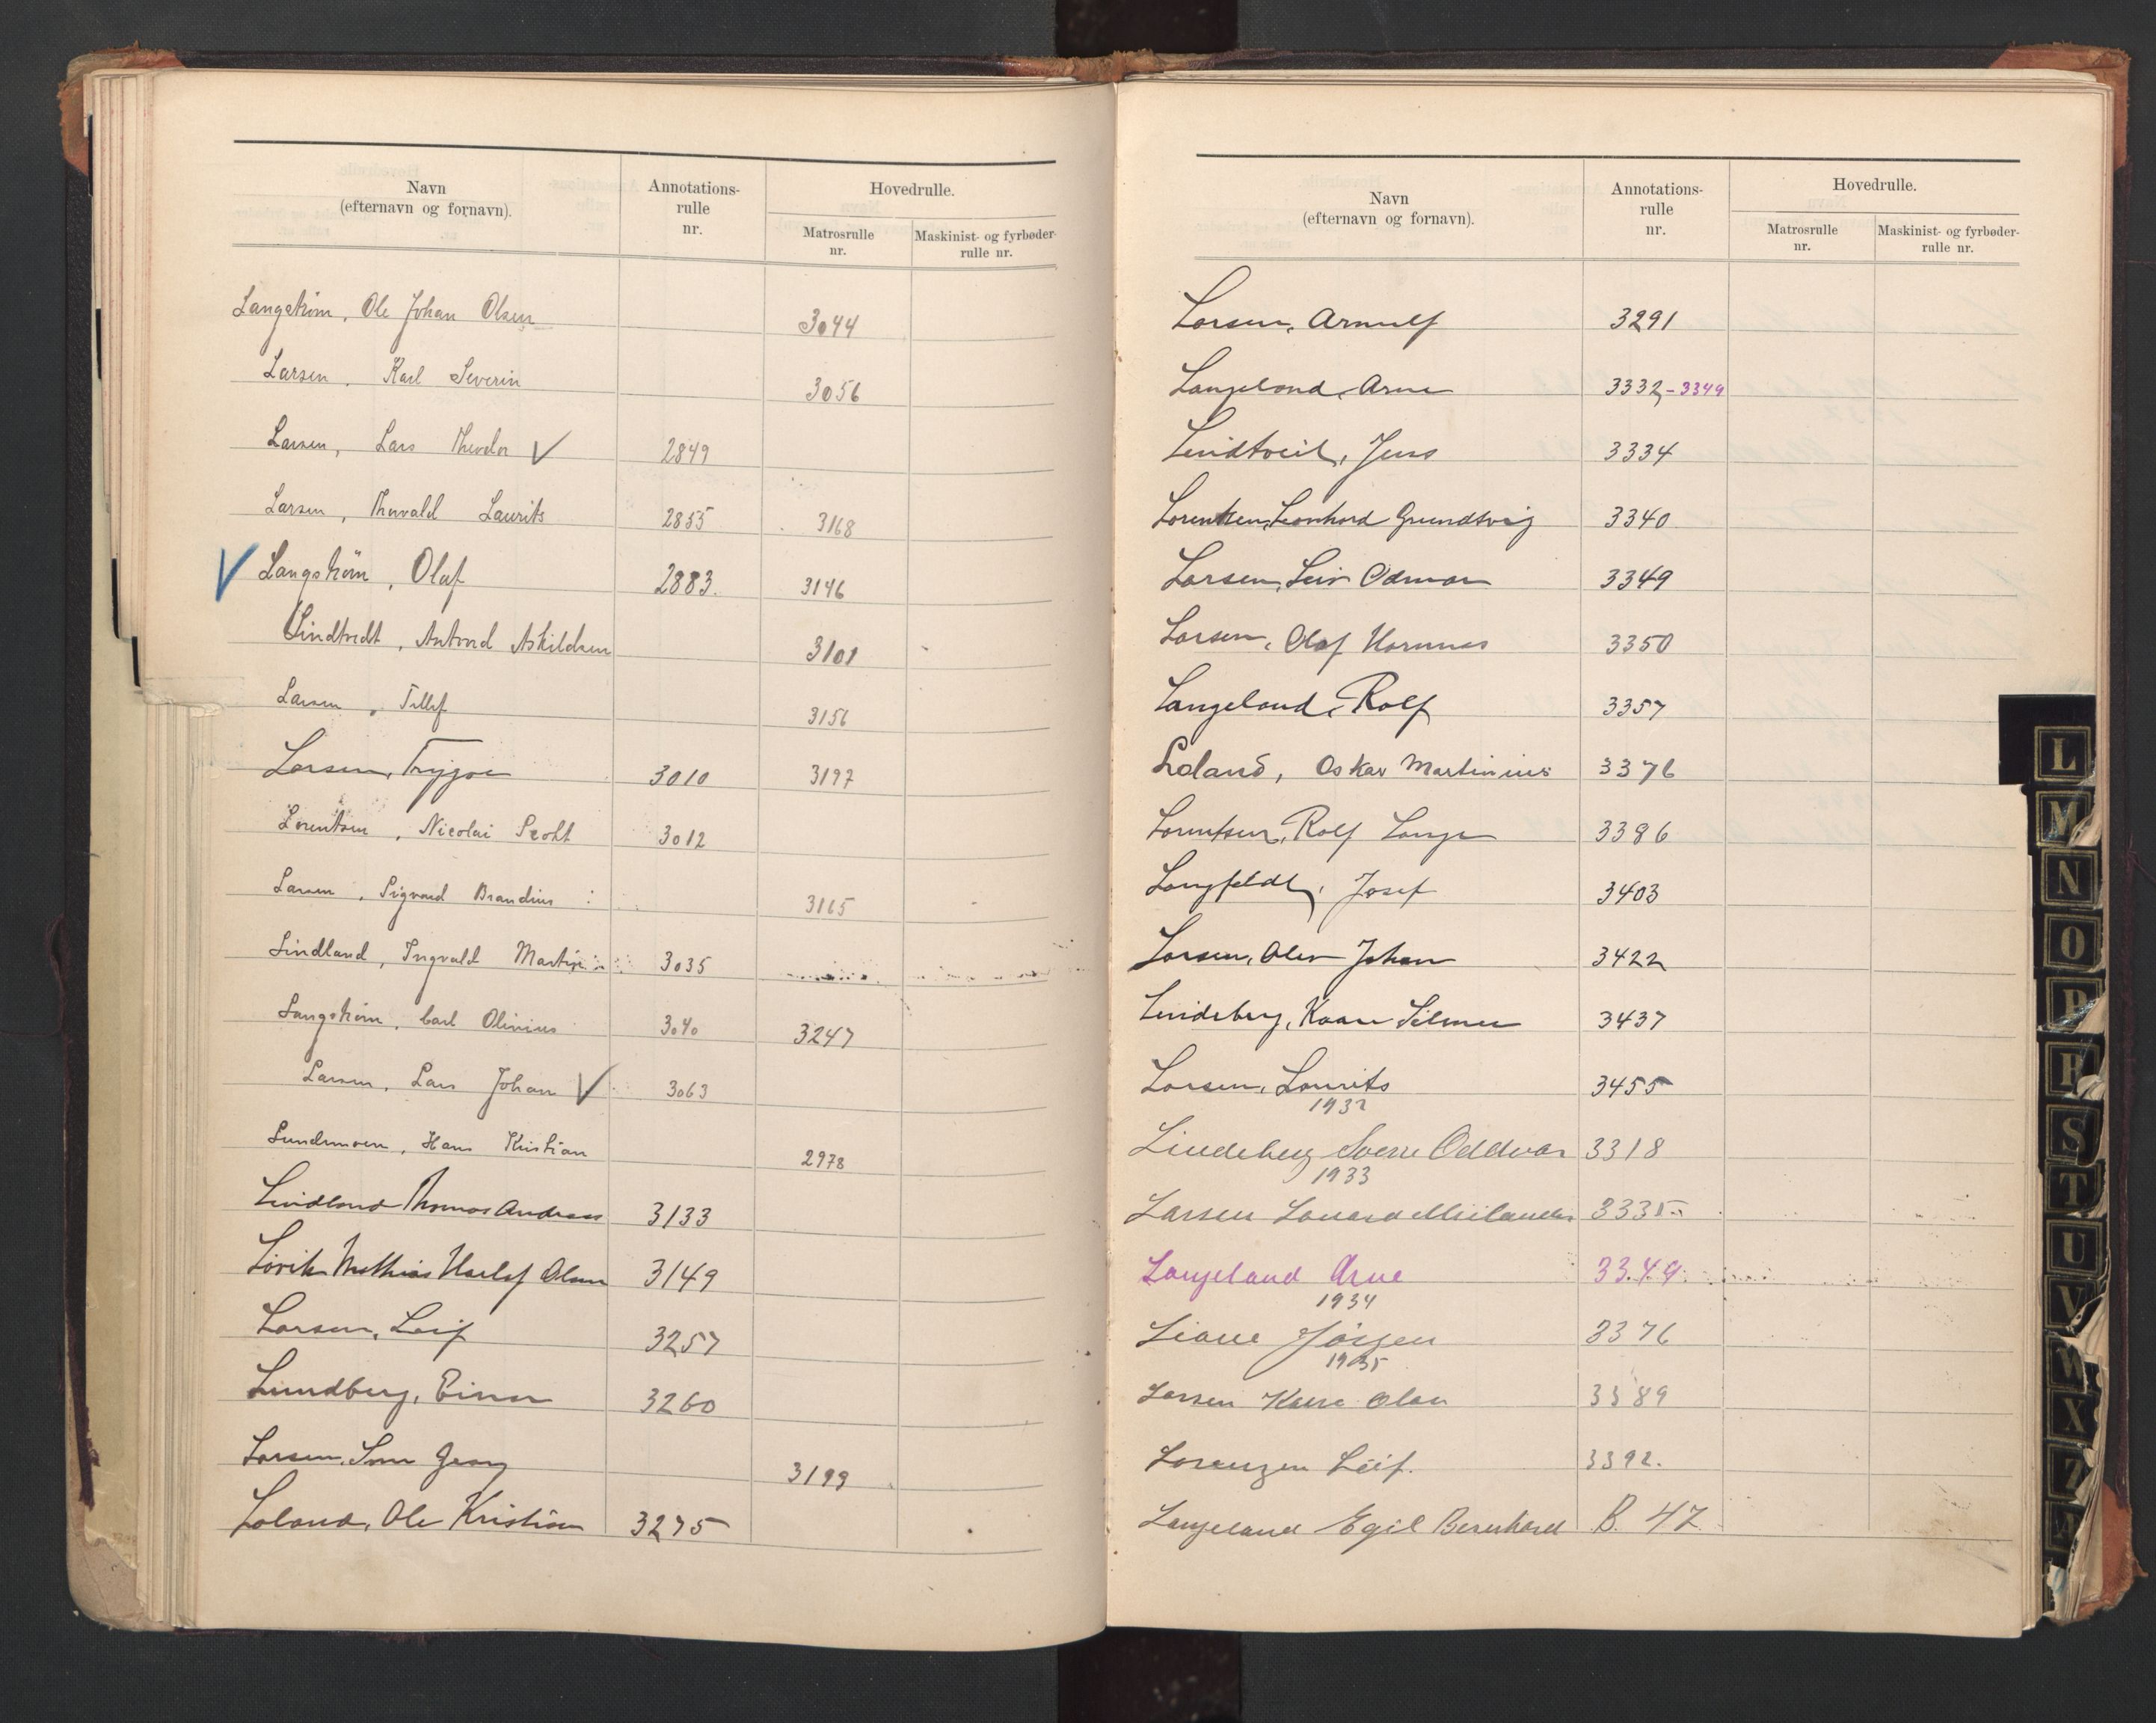 Navn
(efternavn og fornavn).
Annotations-
rulle
nr.
Hovedrulle.
Matrosrulle
nr.
Maskinist- og fyrbøder-
rulle nr.
Langström, Ole Johan Olsen 3044
Larsen, Karl Severin 3056
Larsen, Lars Theodor V 2849
Larsen, Thorvald Laurits 2855 3168
V Langström, Olaf 2883. 3146
Lindtvedt, Askildsen 3101
Larsen, Tellef 3156
Larsen, Trygve 3010 3197
Lorentsen, Nicolai 3012
Larsen, Sigvard Brandius 3165
Lindland, Ingvald Martin 3035
Langström, Carl Olinius 3040 3247
Larsen, Lars Johan V 3063
Lundemoen, Hans Kristian 2978
Lindland Thomas Andreas 3133
Lövik Mathias Olsen 3149
Larsen, Leif 3257
Lundberg, Einar 3260
Larsen, Georg 3199
Loland, Ole Kristian 3275
Navn
(efternavn og fornavn).
Annotations-
rulle
nr.
Hovedrulle.
Matrosrulle
nr.
Maskinist- og fyrbøder-
rulle nr.
Larsen, Arnulf 3291
Langeland, Arne 3332-3349
Lindtveit, Jens 3334
Lorentzen, Leonhard Grundtvig 3340
Larsen, Leiv Odmar 3349
Larsen, Olaf 3350
Langeland, Rolf 3357
Loland, Oskar Martinius 3376
Lorentsen, Rolf Lange 3386
Langfeldt, Josef 3403
Larsen, Olav Johan 3422
Lindeberg, Kaare Selmer 3437
Larsen, Laurits 3455
1932
Lindeberg Sverre Oddvar 3318
1933
Larsen 3335
Langeland Arne 3349
1934
Liane Jörgen 3376
1935
Larsen Kaare Olav 3389
Lorenzen Leif. 3392.
Langeland Egil Bernhard B. 47
L
M
N
O
P
R
S
T
U
V
W
X